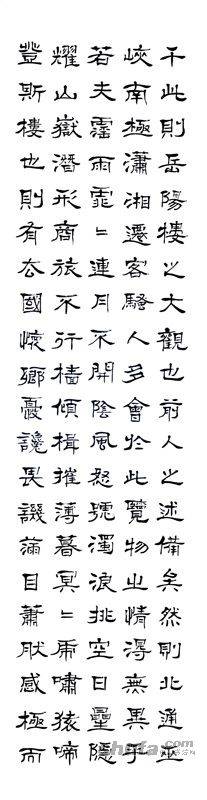 千此則岳陽樓之大觀也前人之述備矣然則北通巫
峽南極瀟湘遷客騷人多會於此覽物之情得無異乎
若夫霪雨霏〻連月不開陰風怒號濁浪排空日曐隱
耀山嶽潛形商旅不行檣傾楫摧薄暮冥〻虎嘯猿啼
登斯樓也則有去國懷鄉憂讒畏譏滿目蕭然感極而